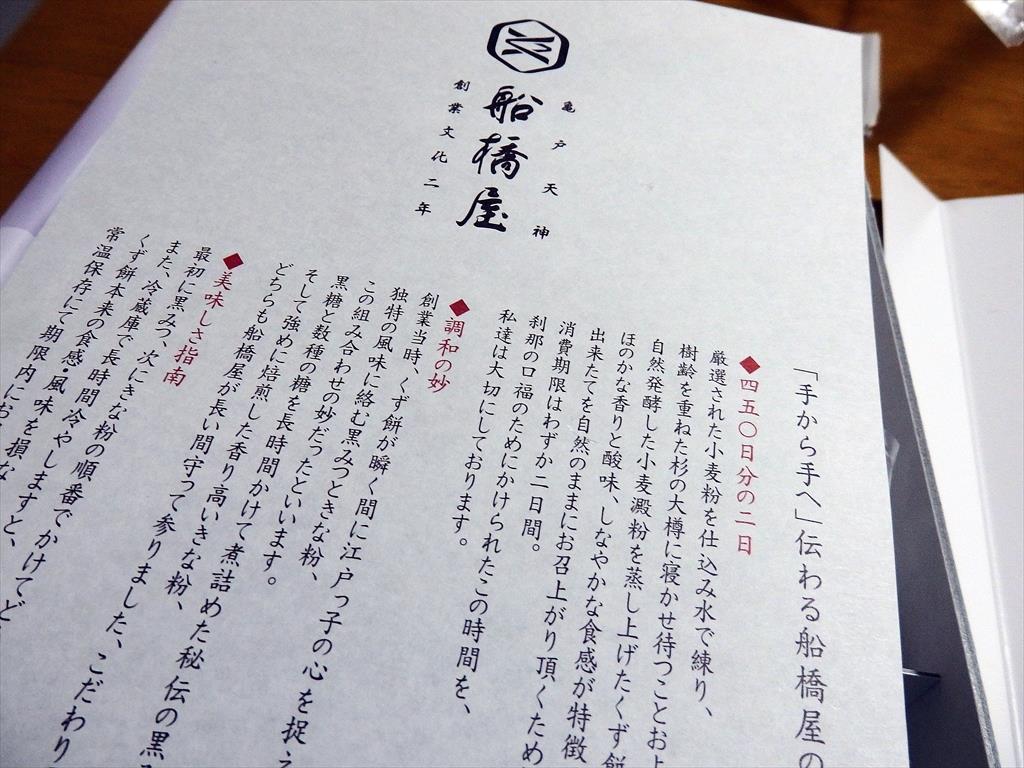 亀戸天神
船橋屋
創業文化二年
「手から手へ」伝わる船橋屋の
◆四五〇日分の二日
厳選された小麦粉を仕込み水で練り、
樹齢を重ねた杉の大樽に寝かせ待つことおよ
自然発酵した小麦澱粉を蒸し上げたくず餅
ほのかな香りと酸味、しなやかな食感が特徴
出来たてを自然のままにお召上がり頂くため
消費期限はわずか二日間。
刹那の口福のためにかけられたこの時間を、
私達は大切にしております。
◆調和の妙
創業当時、くず餅が瞬く間に江戸っ子の心を捉え
独特の風味に絡む黒みつときな粉、
この組み合わせの妙だったといいます。
黒糖と数種の糖を長時間かけて煮詰めた秘伝の黒み
そして強めに焙煎した香り高いきな粉、
どちらも船橋屋が長い間守って参りました、こだわり
◆美味しさ指南
最初に黒みつ、次にきな粉の順番でかけてど
また、冷蔵庫で長時間冷やしますと、
くず餅本来の食感・風味を損な
常温保存にて期限内にお